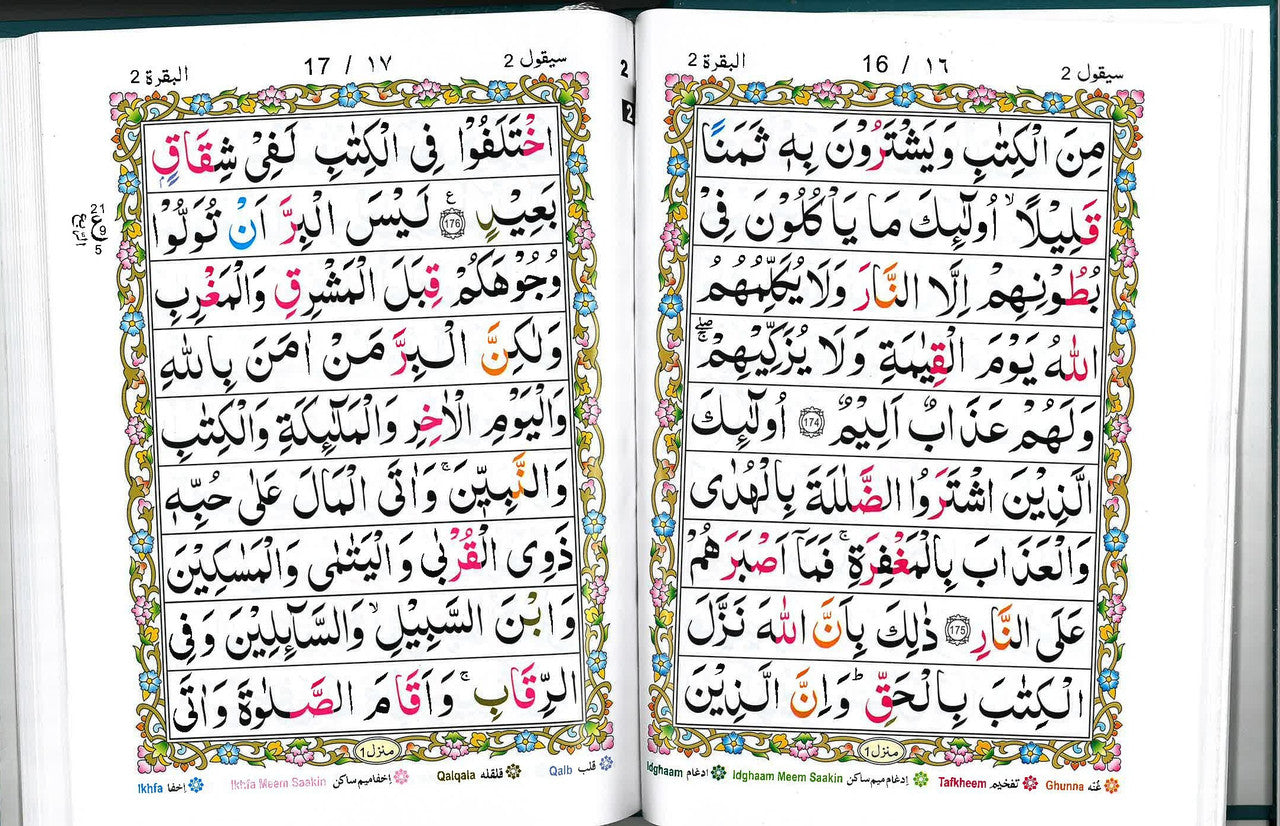 سيقول 2
16 / ١٦
البقرة 2
مِنَ الْكِتٰبِ وَيَشْتَرُوْنَ بِهٖ ثَمَنًا
قَلِيْلًا ۙ اُولٰٓئِكَ مَا يَاْكُلُوْنَ فِيْ
بُطُوْنِهِمْ اِلَّا النَّارَ وَلَا يُكَلِّمُهُمُ
اللّٰهُ يَوْمَ الْقِيٰمَةِ وَلَا يُزَكِّيْهِمْ ۚۖ
وَلَهُمْ عَذَابٌ اَلِيْمٌ 174 اُولٰٓئِكَ
الَّذِيْنَ اشْتَرَوُا الضَّلٰلَةَ بِالْهُدٰى
وَالْعَذَابَ بِالْمَغْفِرَةِ ۚ فَمَآ اَصْبَرَهُمْ
عَلَى النَّارِ 175 ذٰلِكَ بِاَنَّ اللّٰهَ نَزَّلَ
الْكِتٰبَ بِالْحَقِّ ؕ وَاِنَّ الَّذِيْنَ
منزل ١
غُنّه Ghunna تفخيم Tafkheem إدغام ميم ساكن Idghaam Meem Saakin ادغام Idghaam
سيقول 2
17 / ١٧
البقرة 2
اخْتَلَفُوْا فِي الْكِتٰبِ لَفِيْ شِقَاقٍۭ
بَعِيْدٍ ع 176 لَيْسَ الْبِرَّ اَنْ تُوَلُّوْا
وُجُوْهَكُمْ قِبَلَ الْمَشْرِقِ وَالْمَغْرِبِ
وَلٰكِنَّ الْبِرَّ مَنْ اٰمَنَ بِاللّٰهِ
وَالْيَوْمِ الْاٰخِرِ وَالْمَلٰٓئِكَةِ وَالْكِتٰبِ
وَالنَّبِيّٖنَ ۚ وَاٰتَى الْمَالَ عَلٰى حُبِّهٖ
ذَوِي الْقُرْبٰى وَالْيَتٰمٰى وَالْمَسٰكِيْنَ
وَابْنَ السَّبِيْلِ ۙ وَالسَّآئِلِيْنَ وَفِي
الرِّقَابِ ۚ وَاَقَامَ الصَّلٰوةَ وَاٰتَى
منزل ١
قلب Qalb قلقله Qalqala إخفا ميم ساكن Ikhfa Meem Saakin إخفا Ikhfa
21
ع
9
5
الربع
2
2